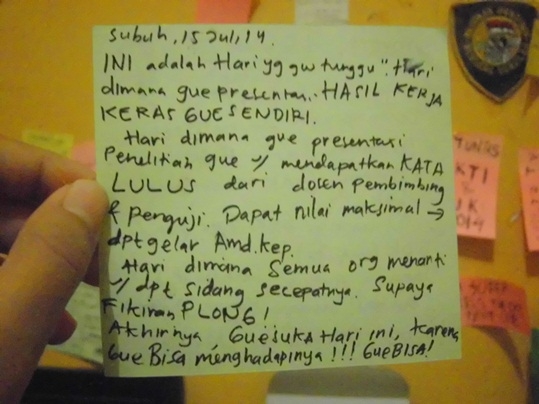 Subuh, 15 Jul, 14.
INI adalah Hari yg gw tunggu". Hari
dimana gue presentasi.. HASIL KERJA
KERAS GUE SENDIRI.
Hari dimana gue presentasi
Penelitian gue y/ mendapatkan KATA
LULUS dari dosen Pembimbing
& Penguji. Dapat nilai maksimal →
dpt gelar Amd.kep.
Hari dimana Semua org menanti
y/ dpt sidang secepatnya. Supaya
Fikiran PLONG!
Akhirnya, Gue suka Hari ini, karena
Gue Bisa menghadapinya!!! Gue BISA!
KTI